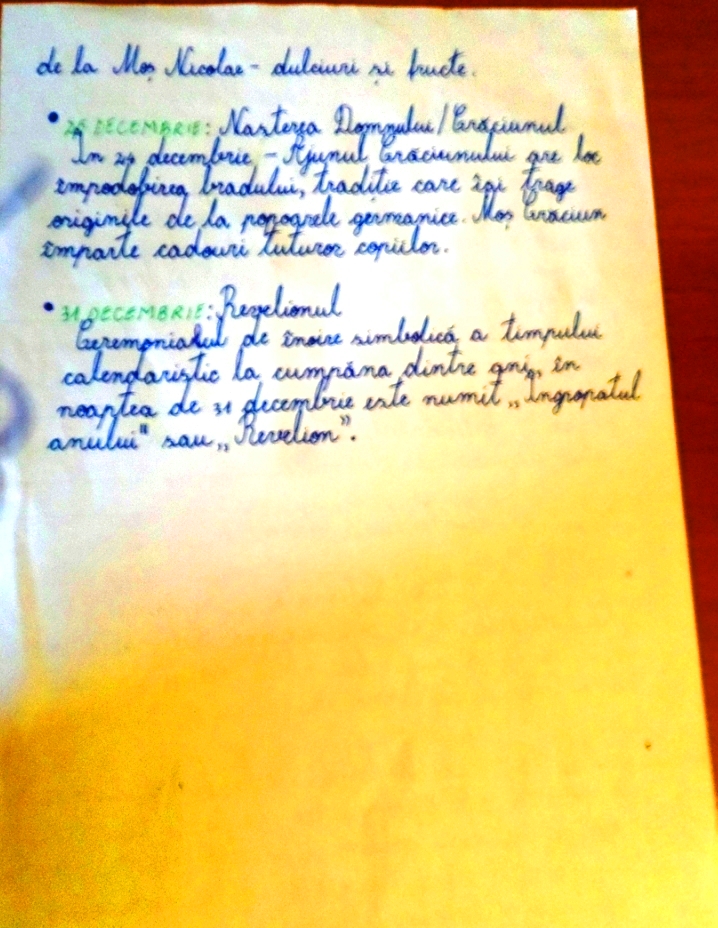 de la Moș Nicolae - dulciuri și fructe.
• 25 DECEMBRIE: Nașterea Domnului/Crăciunul
În 24 decembrie - Ajunul Crăciunului are loc
împodobirea bradului, tradiție care își trage
originile de la popoarele germanice. Moș Crăciun
împarte cadouri tuturor copiilor.
• 31 DECEMBRIE: Revelionul
Ceremonialul de înoire simbolică a timpului
calendaristic la cumpăna dintre ani, în
noaptea de 31 decembrie este numit „Îngropatul
anului" sau „Revelion”.